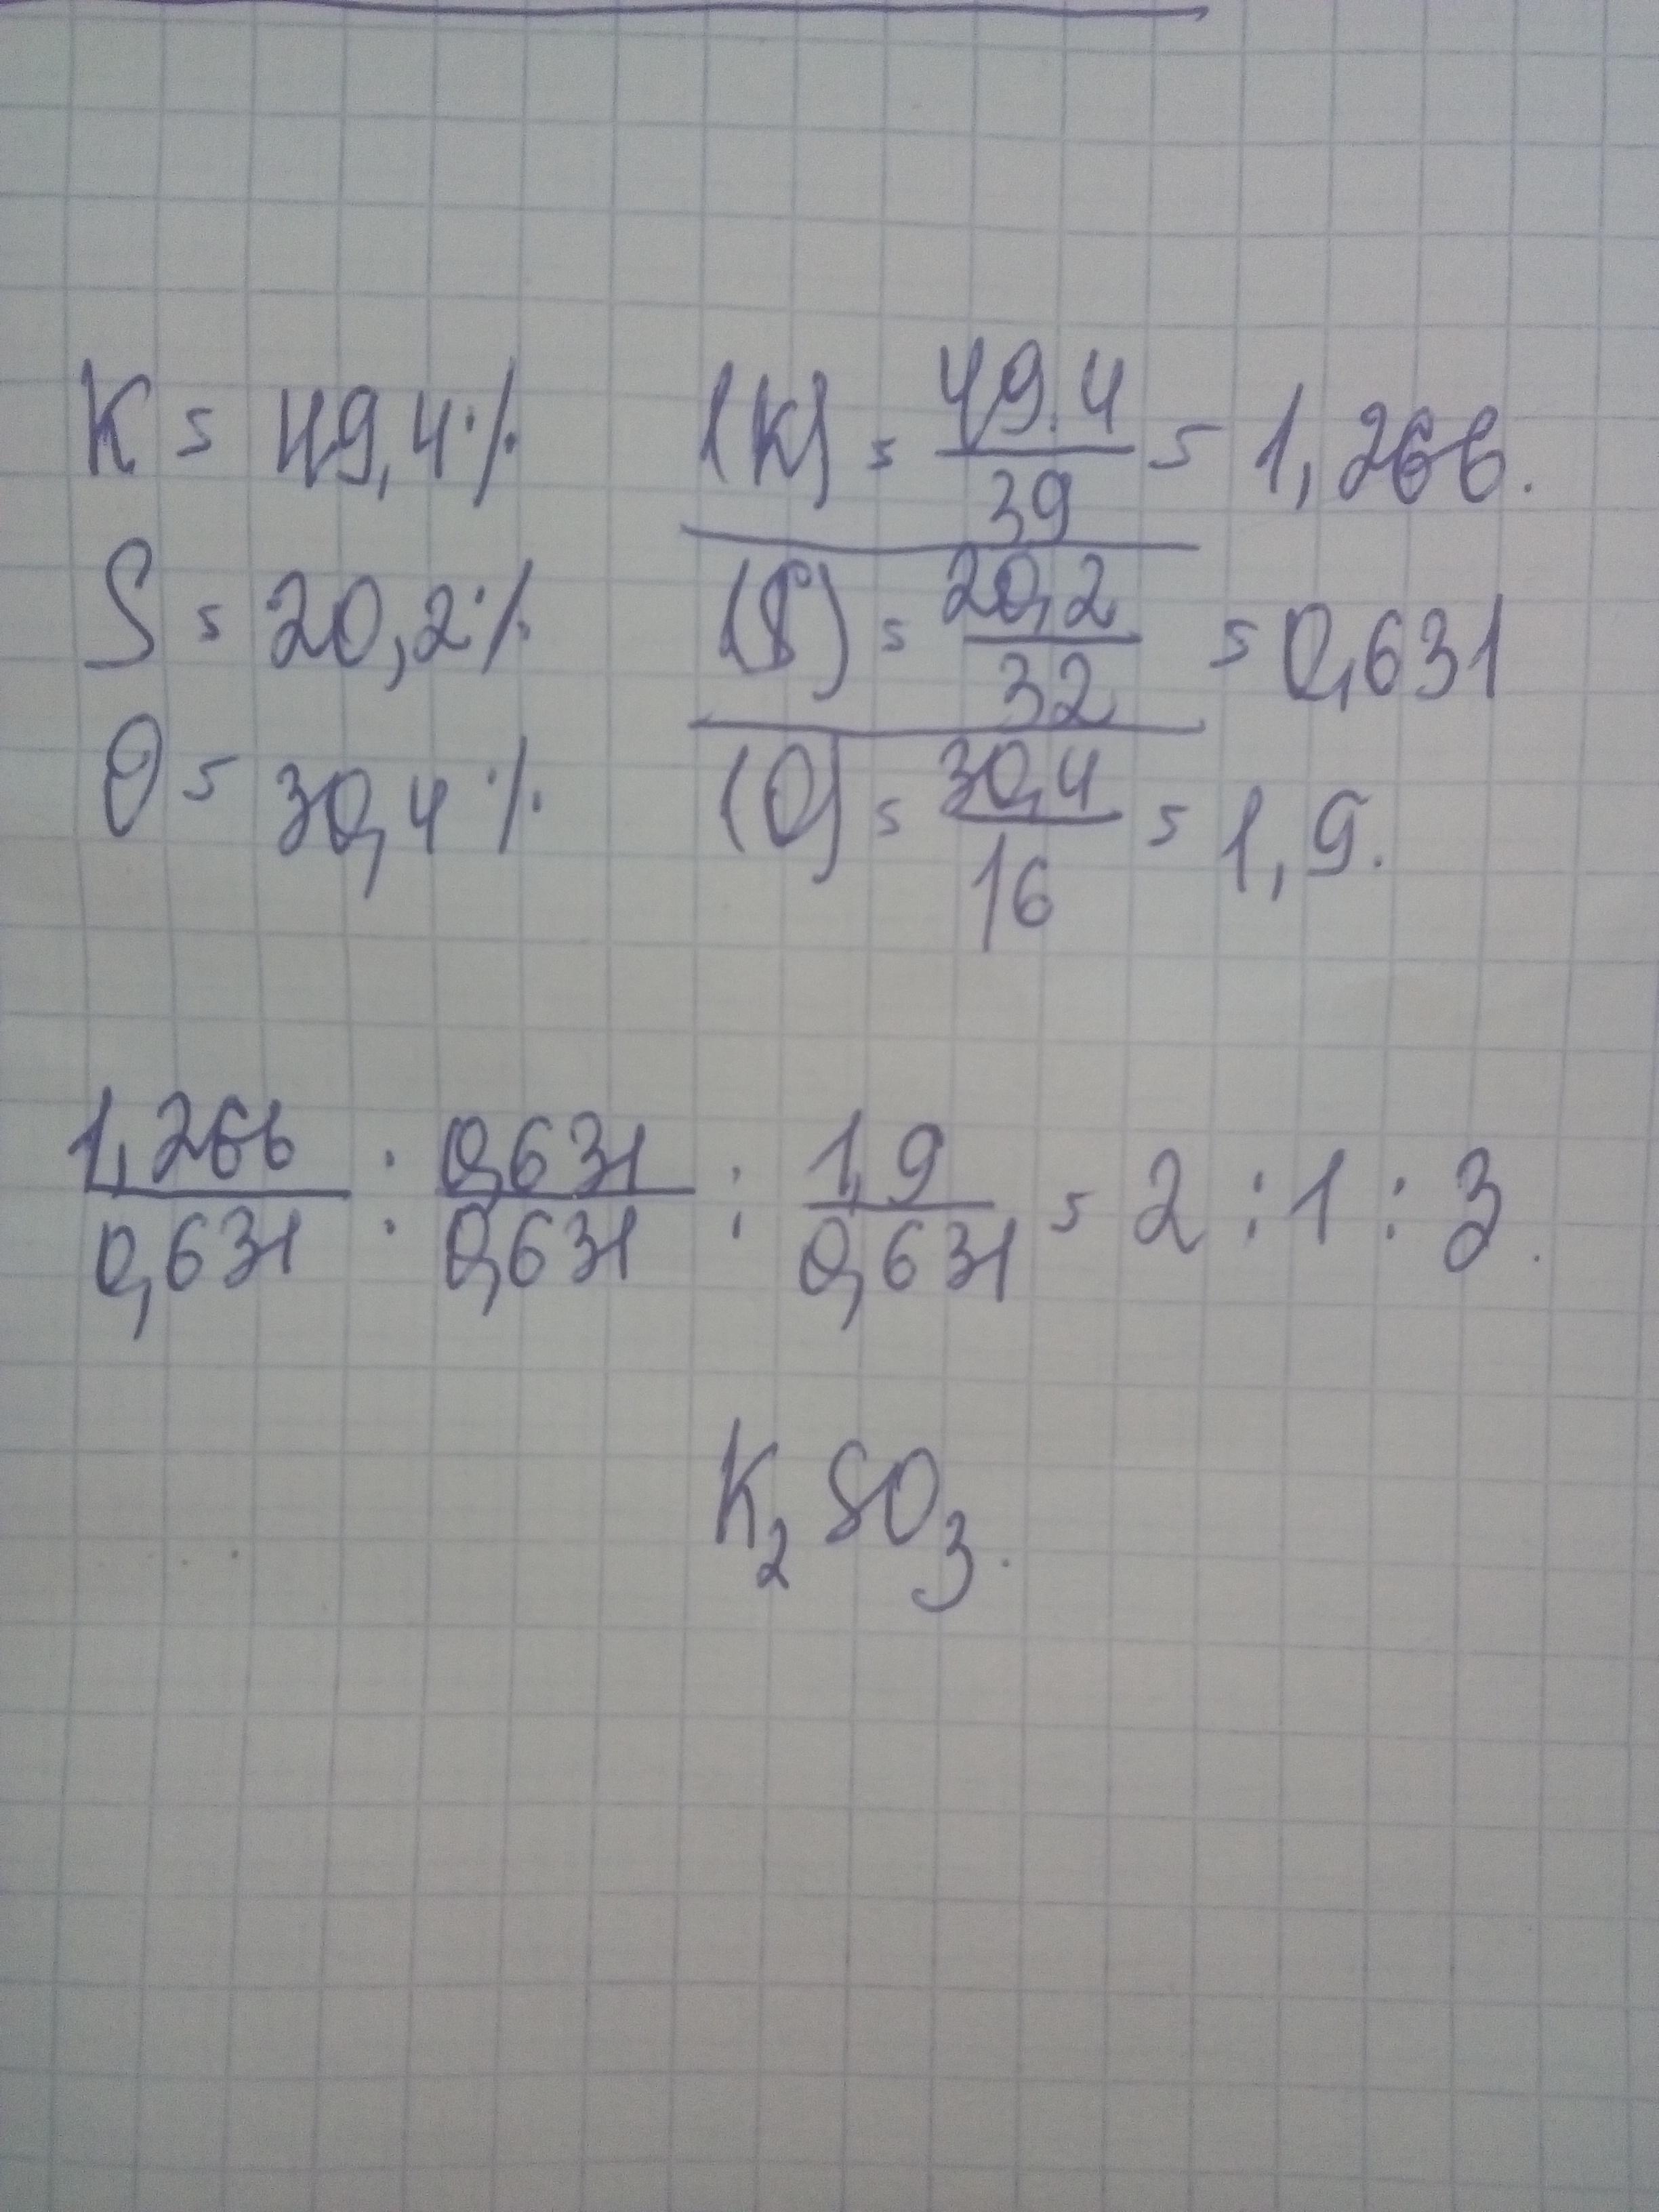 K = 49,4% (K) = 49.4/39 = 1,266.
S = 20,2% (S) = 20,2/32 = 0,631
O = 30,4% (O) = 30,4/16 = 1,9.
1,266/0,631 : 0,631/0,631 : 1,9/0,631 = 2 : 1 : 3.
K₂SO₃.